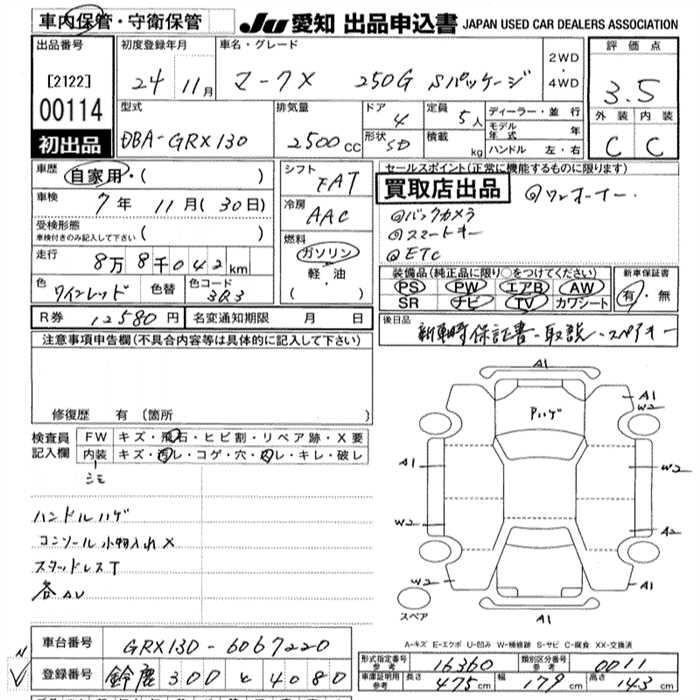 車内保管・守衛保管
JU 愛知 出品申込書 JAPAN USED CAR DEALERS ASSOCIATION
出品番号
[2122]
00114
初出品
初度登録年月
24 11月
車名・グレード
マークX 250G Sパッケージ
2WD
・
4WD
評価点
3.5
外装 内装
C C
型式
DBA-GRX130
排気量
2500cc
ドア
4
形状
SD
定員
5人
積載
kg
ディーラー・並行
モデル年式 年
ハンドル 左・右
車歴
自家用・( )
車検
7年 11月(30日)
受検形態
車検付きのみ記入して下さい ( )
走行
8万8千042km
色
ワインレッド
色替
色コード
3R3
シフト
FAT
冷房
AAC
燃料
ガソリン
・
軽・油
( )
セールスポイント(正常に機能するものに限ります)
買取店出品 @ワンオーナー.
@バックカメラ
@スマートキー
@ETC
装備品(純正品に限り○をつけてください)
PS PW エアB AW
SR ナビ TV カワシート
新車保証書
有・無
R券 12580円 名変通知期限 月 日
後日品
新車時保証書-取説-スペアキー
注意事項申告欄(不具合内容等は具体的に記入して下さい)
修復歴 有 (箇所 )
検査員
記入欄
FW キズ・飛石・ヒビ割・リペア跡・X要
内装 キズ・汚レ・コゲ・穴・凹レ・キレ・破レ
シミ
ハンドルハゲ
コンソール小物入れX
スタッドレスT
各AU
A1
Pハゲ
A1
W2
A1
W2
W2
A2
W2
A1
A1
スペア
A-キズ E-エクボ U-凹み W-補修跡 S-サビ C-腐食 XX-交換済
車台番号
GRX130-6067220
登録番号
鈴鹿 300 と 4080
形式指定番号
参考
16360
類別区分番号
参考
0011
車庫証明用
参考
長さ 475cm 幅 179cm 高さ 143cm